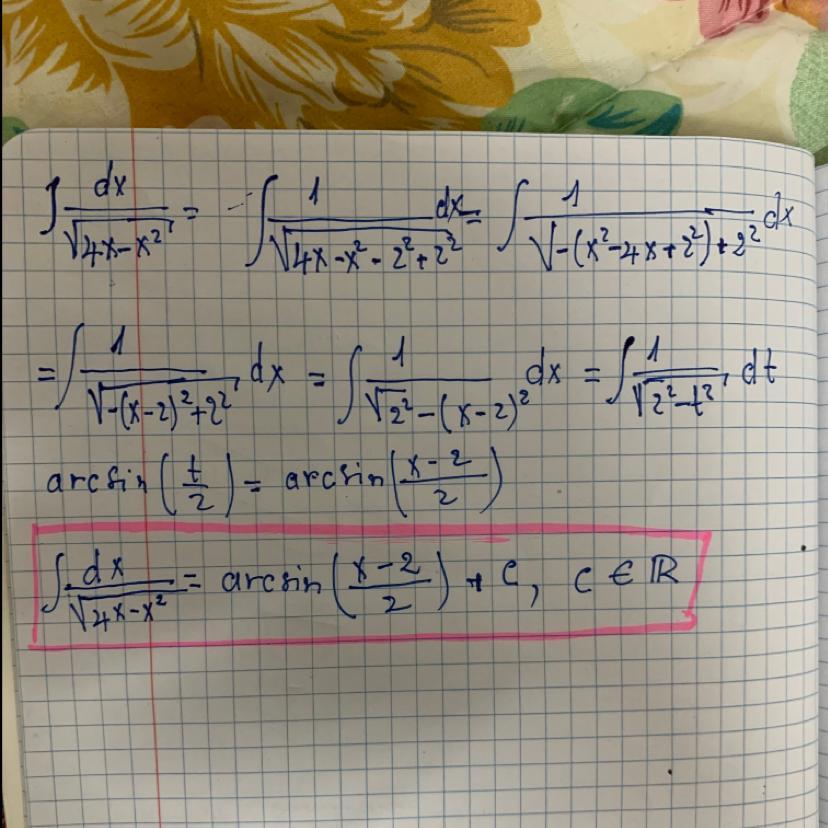 ∫ dx/√(4x-x²) = -∫ 1/√(4x-x²-2²+2²) dx = ∫ 1/√(-(x²-4x+2²)+2²) dx
= ∫ 1/√(-(x-2)²+2²) dx = ∫ 1/√2²-(x-2)² dx = ∫ 1/√(2²-t²) dt
arcsin(t/2) = arcsin(x-2/2)
∫ dx/√(4x-x²) = arcsin(x-2/2) + C, C ∈ ℝ